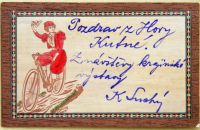 Pozdrav z Hory
Kutné.
Z návštěvy krajinské
výstavy
K Suchý